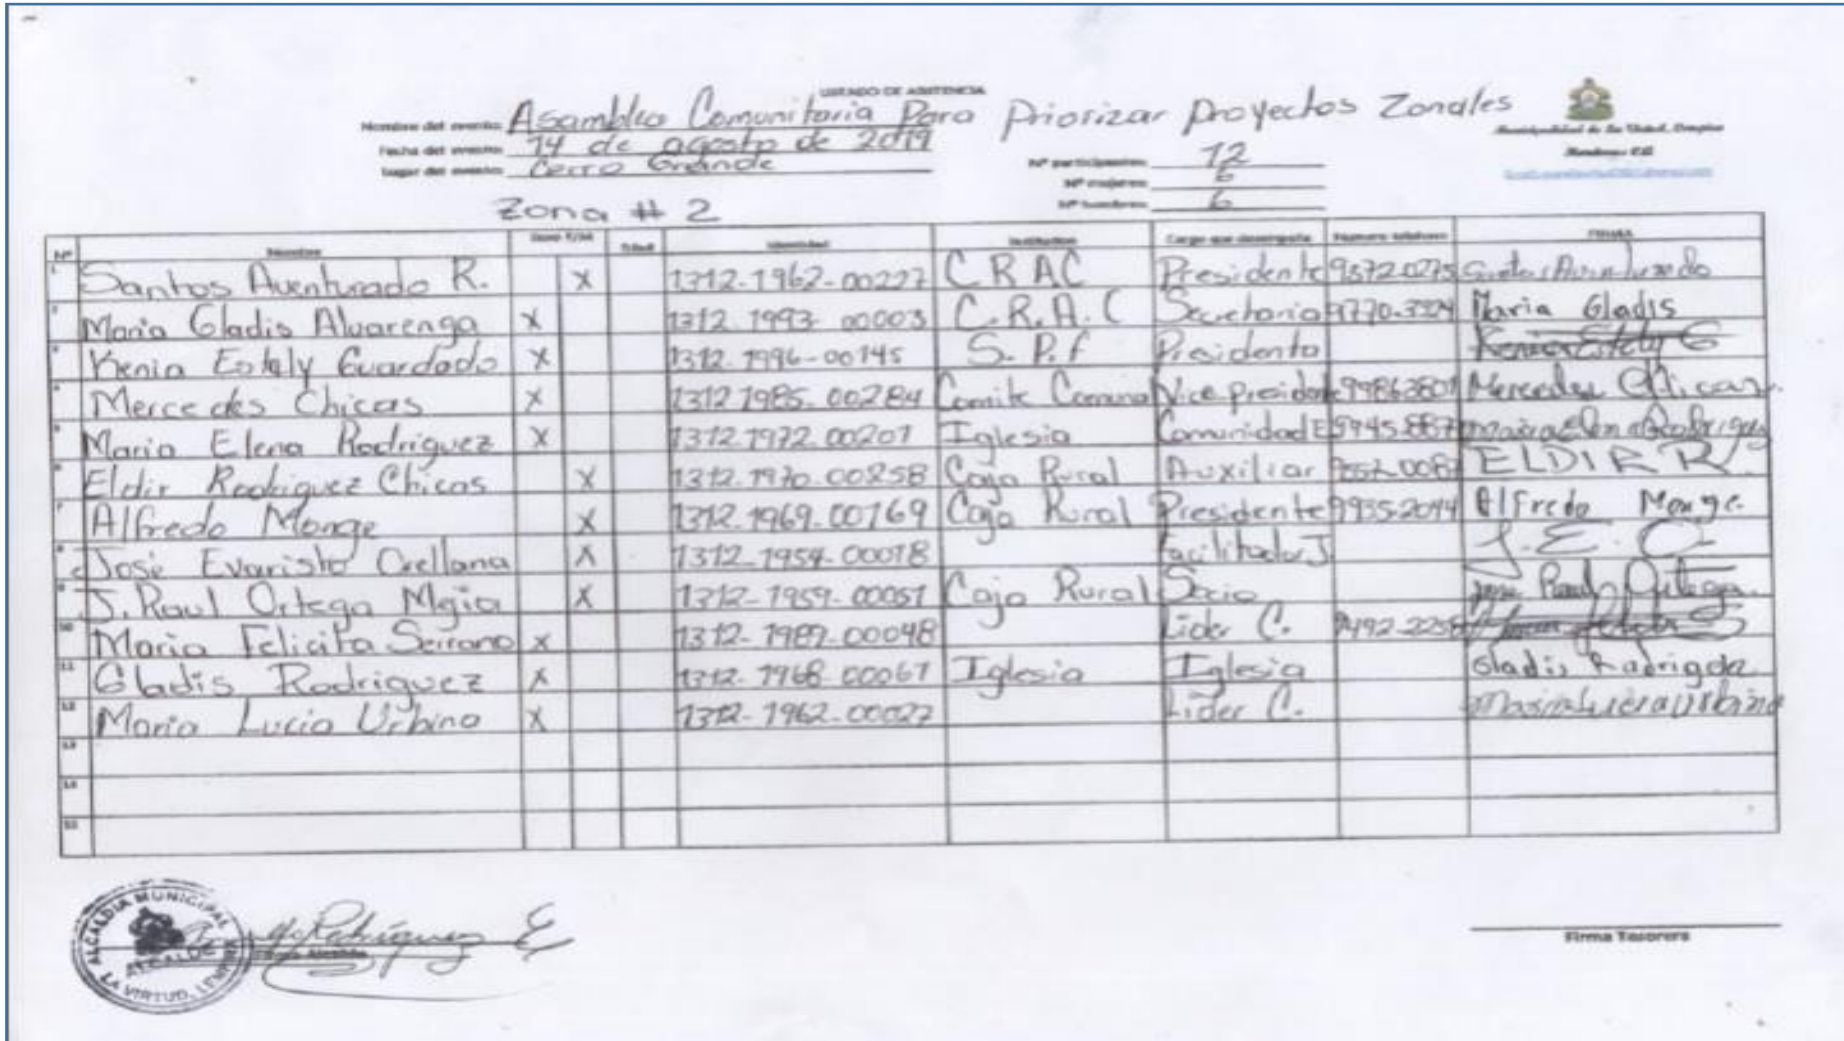 LISTADO DE ASISTENCIA
Nombre del evento: Asamblea Comunitaria Para Priorizar Proyectos Zonales
Fecha del evento: 14 de agosto de 2019
Lugar del evento: Cerro Grande
Nº participantes: 12
Nº mujeres: 6
Nº hombres: 6
Municipalidad de La Virtud, Lempira
Honduras C.A.
Zona # 2
Nº Nombre Sexo F/M Edad Identidad Institucion Cargo que desempeña Numero telefono FIRMA
1 Santos Aventurado R. X 1312-1962-00227 CRAC Presidente 9572.0275 Santos Aventurado
2 Maria Gladis Alvarenga X 1312.1993-00003 C.R.A.C Secretaria Maria Gladis
3 Kenia Estely Guardado X 1312.1996-00145 S.P.f Presidenta Kenia Estely G
4 Mercedes Chicas X 1312 1985.00284 Comite Comuna Vice presidente 99863801 Mercedes Chicas
5 Maria Elena Rodriguez X 1312.1972.00201 Iglesia Comunidad E Maria Elena Rodriguez
6 Eldir Rodriguez Chicas X 1312.1970.00258 Caja Rural Auxiliar ELDIR R
7 Alfredo Monge X 1312-1969-00169 Caja Rural Presidente 9935-2044 Alfredo Monge.
8 José Evaristo Orellana X 1312-1954-00018 facilitador J. J.E.O
9 J. Raul Ortega Mejia X 1312-1959-00051 Caja Rural Socio Jose Raul Ortega.
10 Maria Felicita Serrano x 1312-1989-00048 Lider C. 9492-2258
11 Gladis Rodriguez X 1312-1968-00061 Iglesia Iglesia Gladis Rodrigez
12 Maria Lucia Urbina X 1312-1962-00027 Lider C. Maria Lucia Urbina
13
14
15
ALCALDIA MUNICIPAL
ALCALDE
LA VIRTUD, LEMPIRA
Rodríguez E
Alcalde
Firma Tesorera